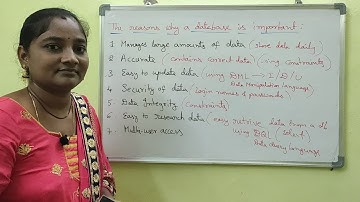 The reasons why a database is important:
1 Manages large amounts of data (store data daily)
2 Accurate (contains correct data) (using constraints)
3 Easy to update data (using DML → I/D/U
Data Manipulation Language)
4 Security of data (login names & passwords)
5 Data Integrity (constraints)
6 Easy to research data (easy retrive data from a db
using DQL (select)
7. Multi-user access
Data Query Language